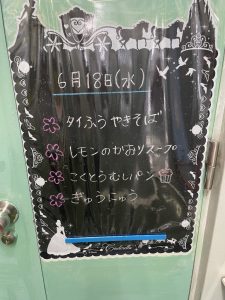 6月18日(水)
タイふうやきそば
レモンのかおりスープ
こくとうむしパン
ぎゅうにゅう
Cinderella